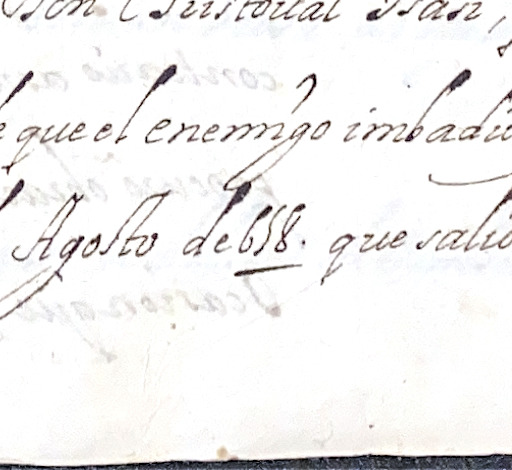 Don Christoual Isasi,
que el enemigo imbadio
Agosto de 658. que salio